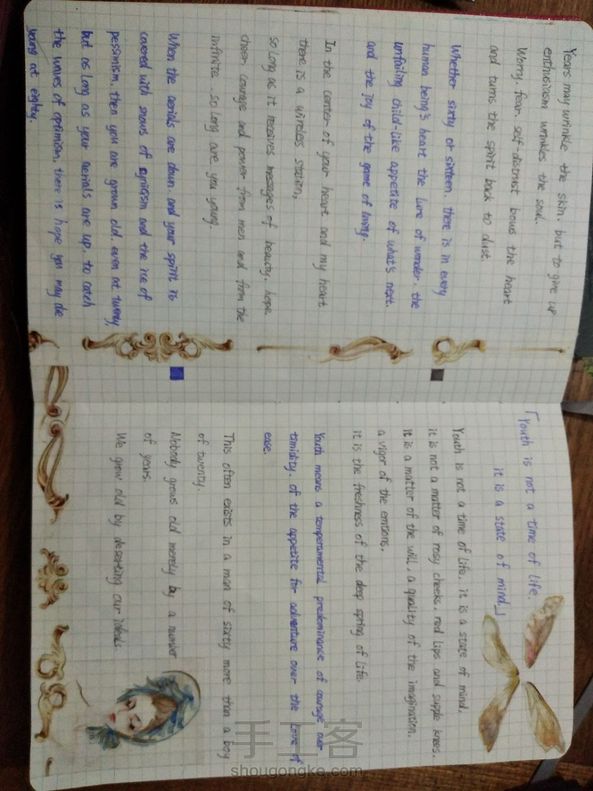 「Youth is not a time of life.
it is a state of mind」
Youth is not a time of life. it is a state of mind.
it is not a matter of rosy cheeks. red lips and supple knees.
it is a matter of the will. a quality of the imagination.
a vigor of the emtions.
it is the freshness of the deep spring of life.
Youth means a temperamental predominance of courage over
timidity. of the appetite for adventure over the love of
ease.
This often exists in a man of sixty more than a boy
of twenty.
Nobody grows old merely by a number
of years.
We grow old by deserting our ideals
Years may wrinkle the skin, but to give up
enthusiasm wrinkles the soul.
Worry, fear, self-distrust bows the heart
and turns the spirit back to dust.
Whether sixty or sixteen, there is in every
human being's heart the lure of wonder. the
unfailing child-like appetite of what's next.
and the joy of the game of living.
In the center of your heart and my heart
there is a wireless station,
so long as it receives messages of beauty, hope.
cheer, courage and power from men and from the
infinite. so long are you young.
When the aerials are down. and your spirit is
covered with snows of cynicism and the ice of
pessimism, then you are grown old even at twenty,
but as long as your aerials are up, to catch
the waves of optimism, there is hope you may die
young at eighty.
手工客
shougongke.com